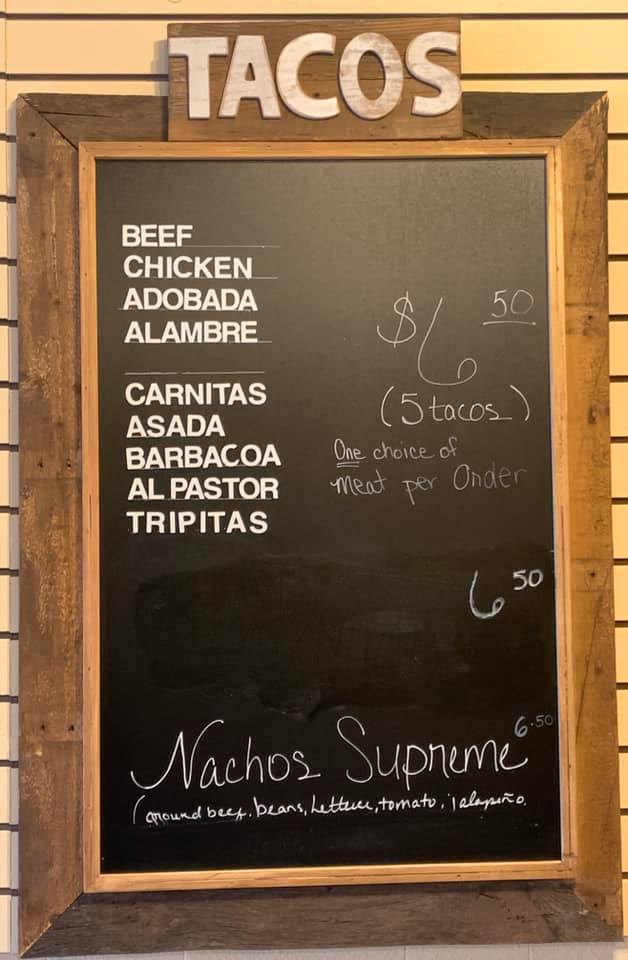 TACOS
BEEF
CHICKEN
ADOBADA
ALAMBRE
CARNITAS
ASADA
BARBACOA
AL PASTOR
TRIPITAS
$6 50
(5 tacos)
One choice of
meat per Order
6 50
Nachos Supreme 6.50
(ground beef, beans, Lettuce, tomato, jalapeño.